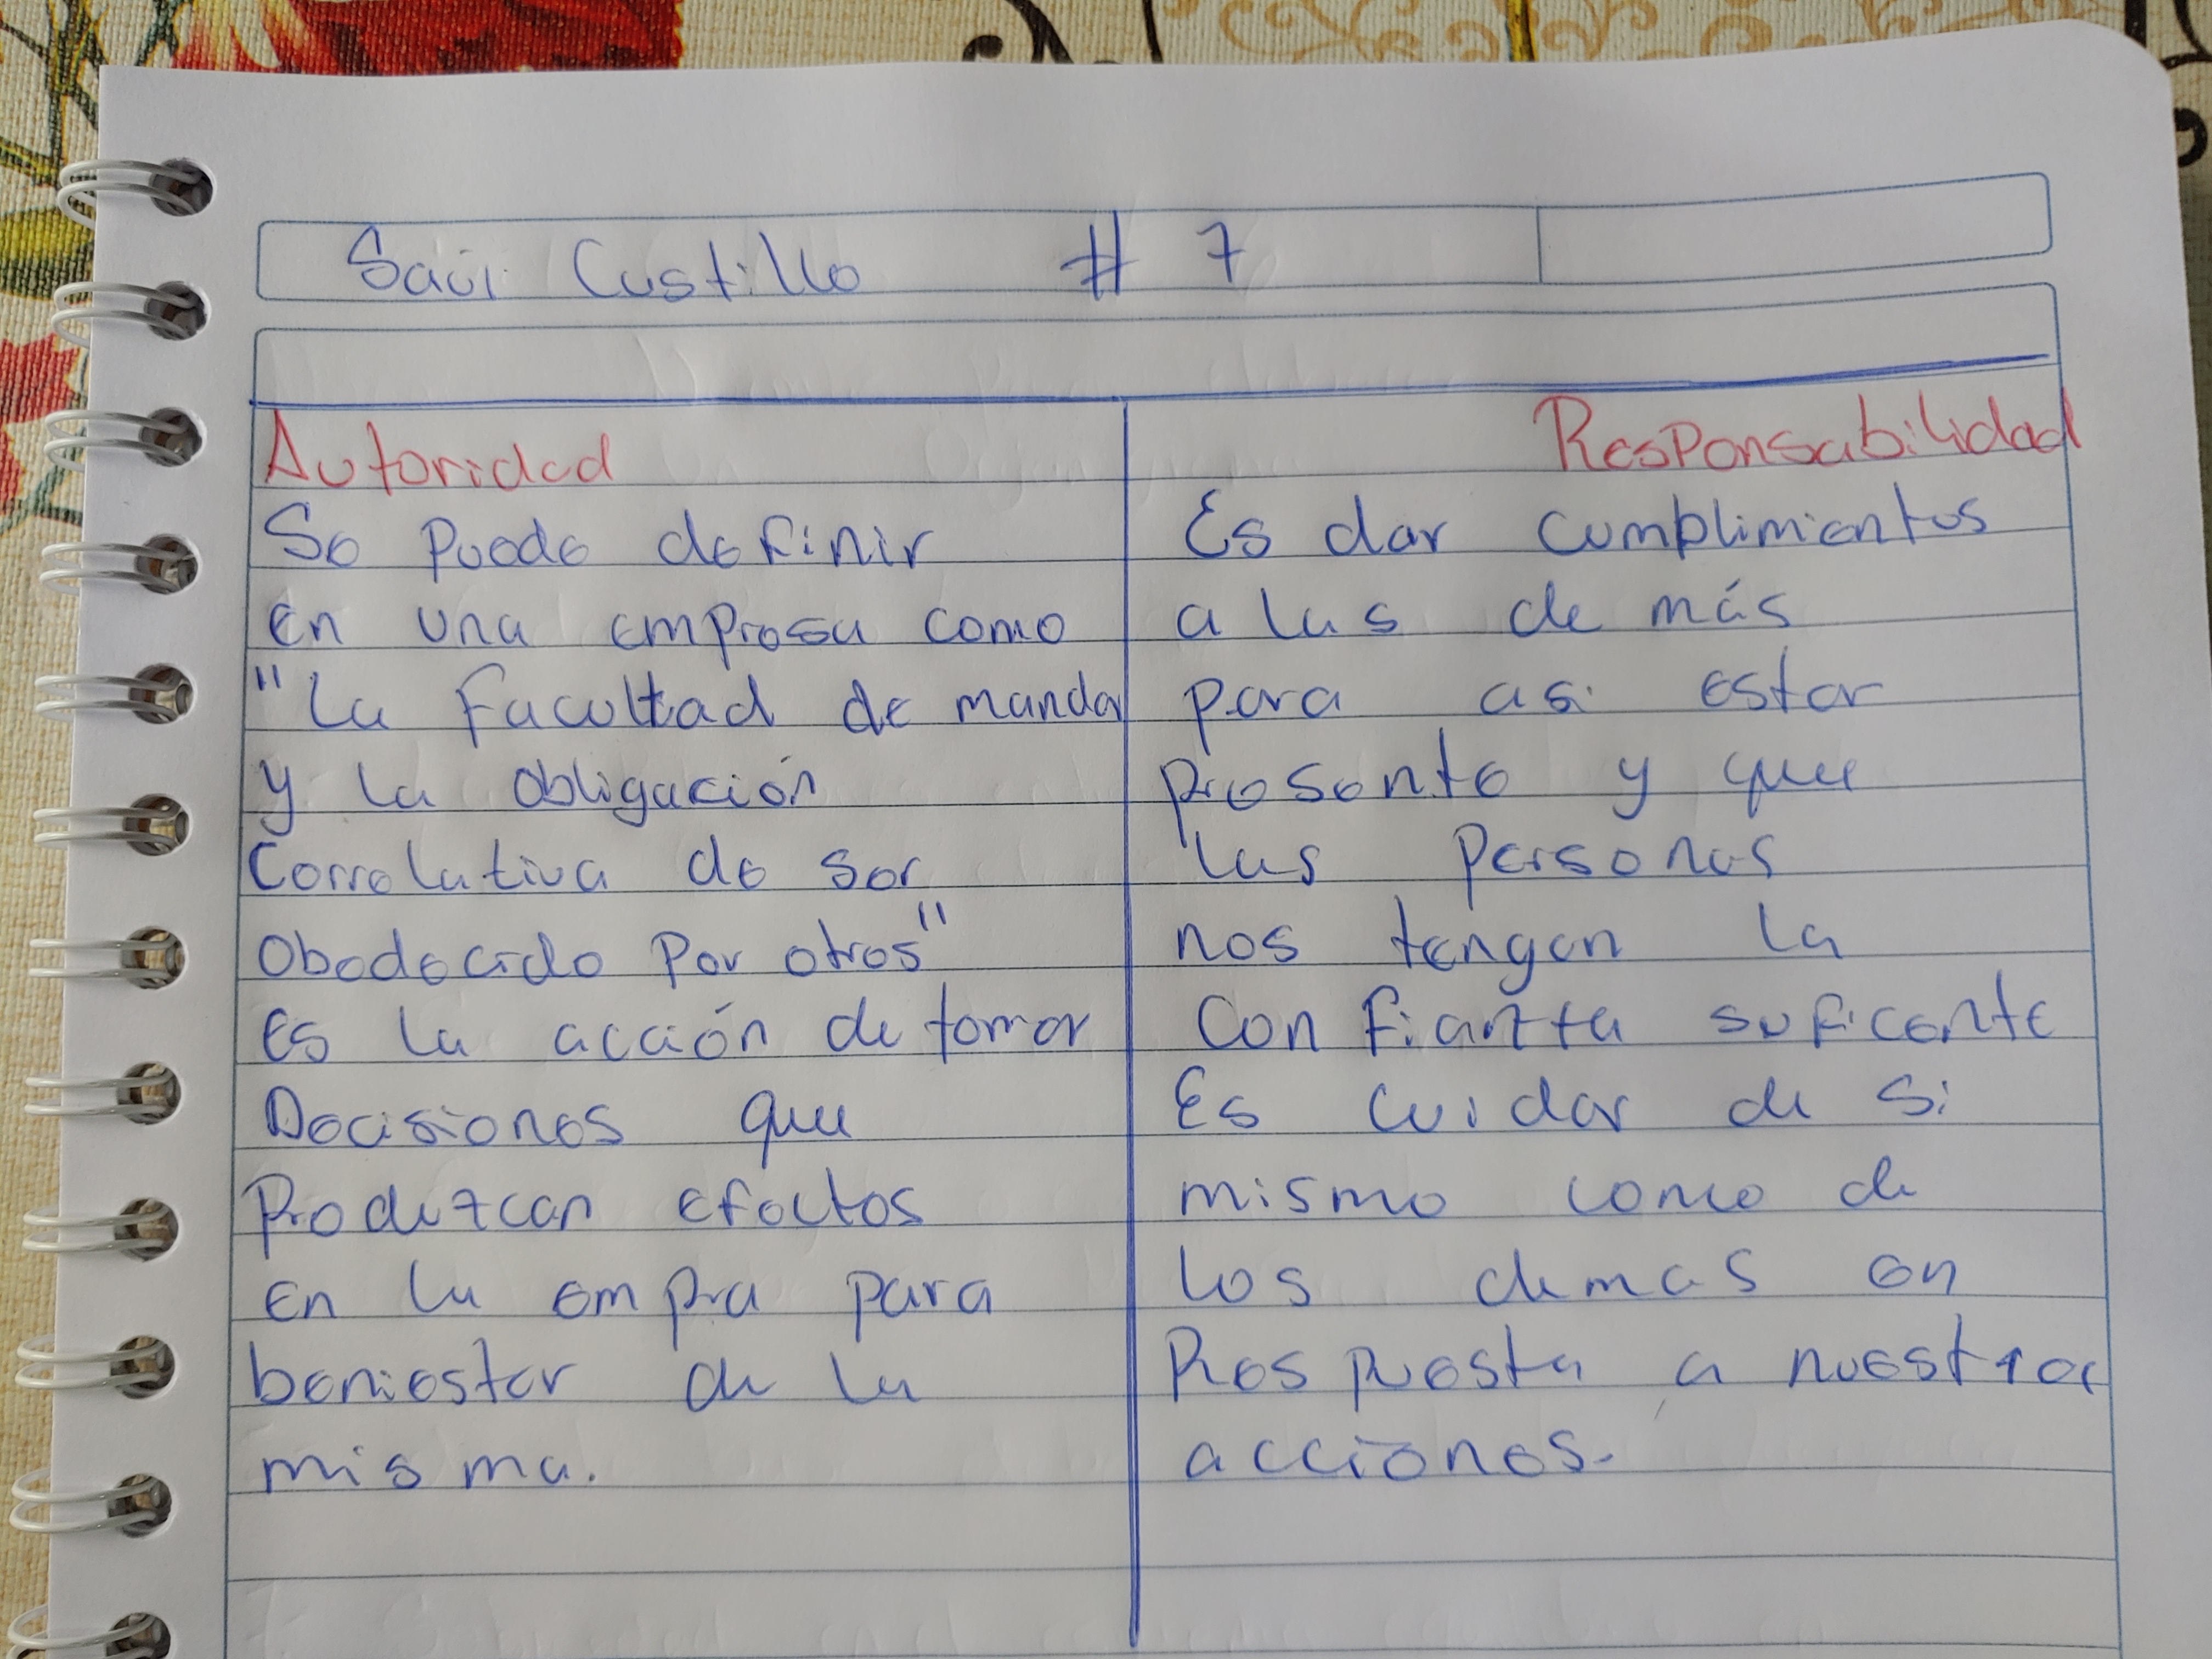 Saúl Castillo # 7
Autoridad
Se puede definir
en una empresa como
"La facultad de mandar
y la obligación
Correlativa de ser
Obedecido por otros"
es la acción de tomar
Decisiones que
Produzcan efectos
en la empra para
beniestar de la
misma.
Responsabilidad
Es dar cumplimientos
a las de más
para asi estar
presente y que
las personas
nos tengan la
confianza suficente
Es cuidar de si
mismo como de
los demas en
Respuesta a nuestras
acciones.